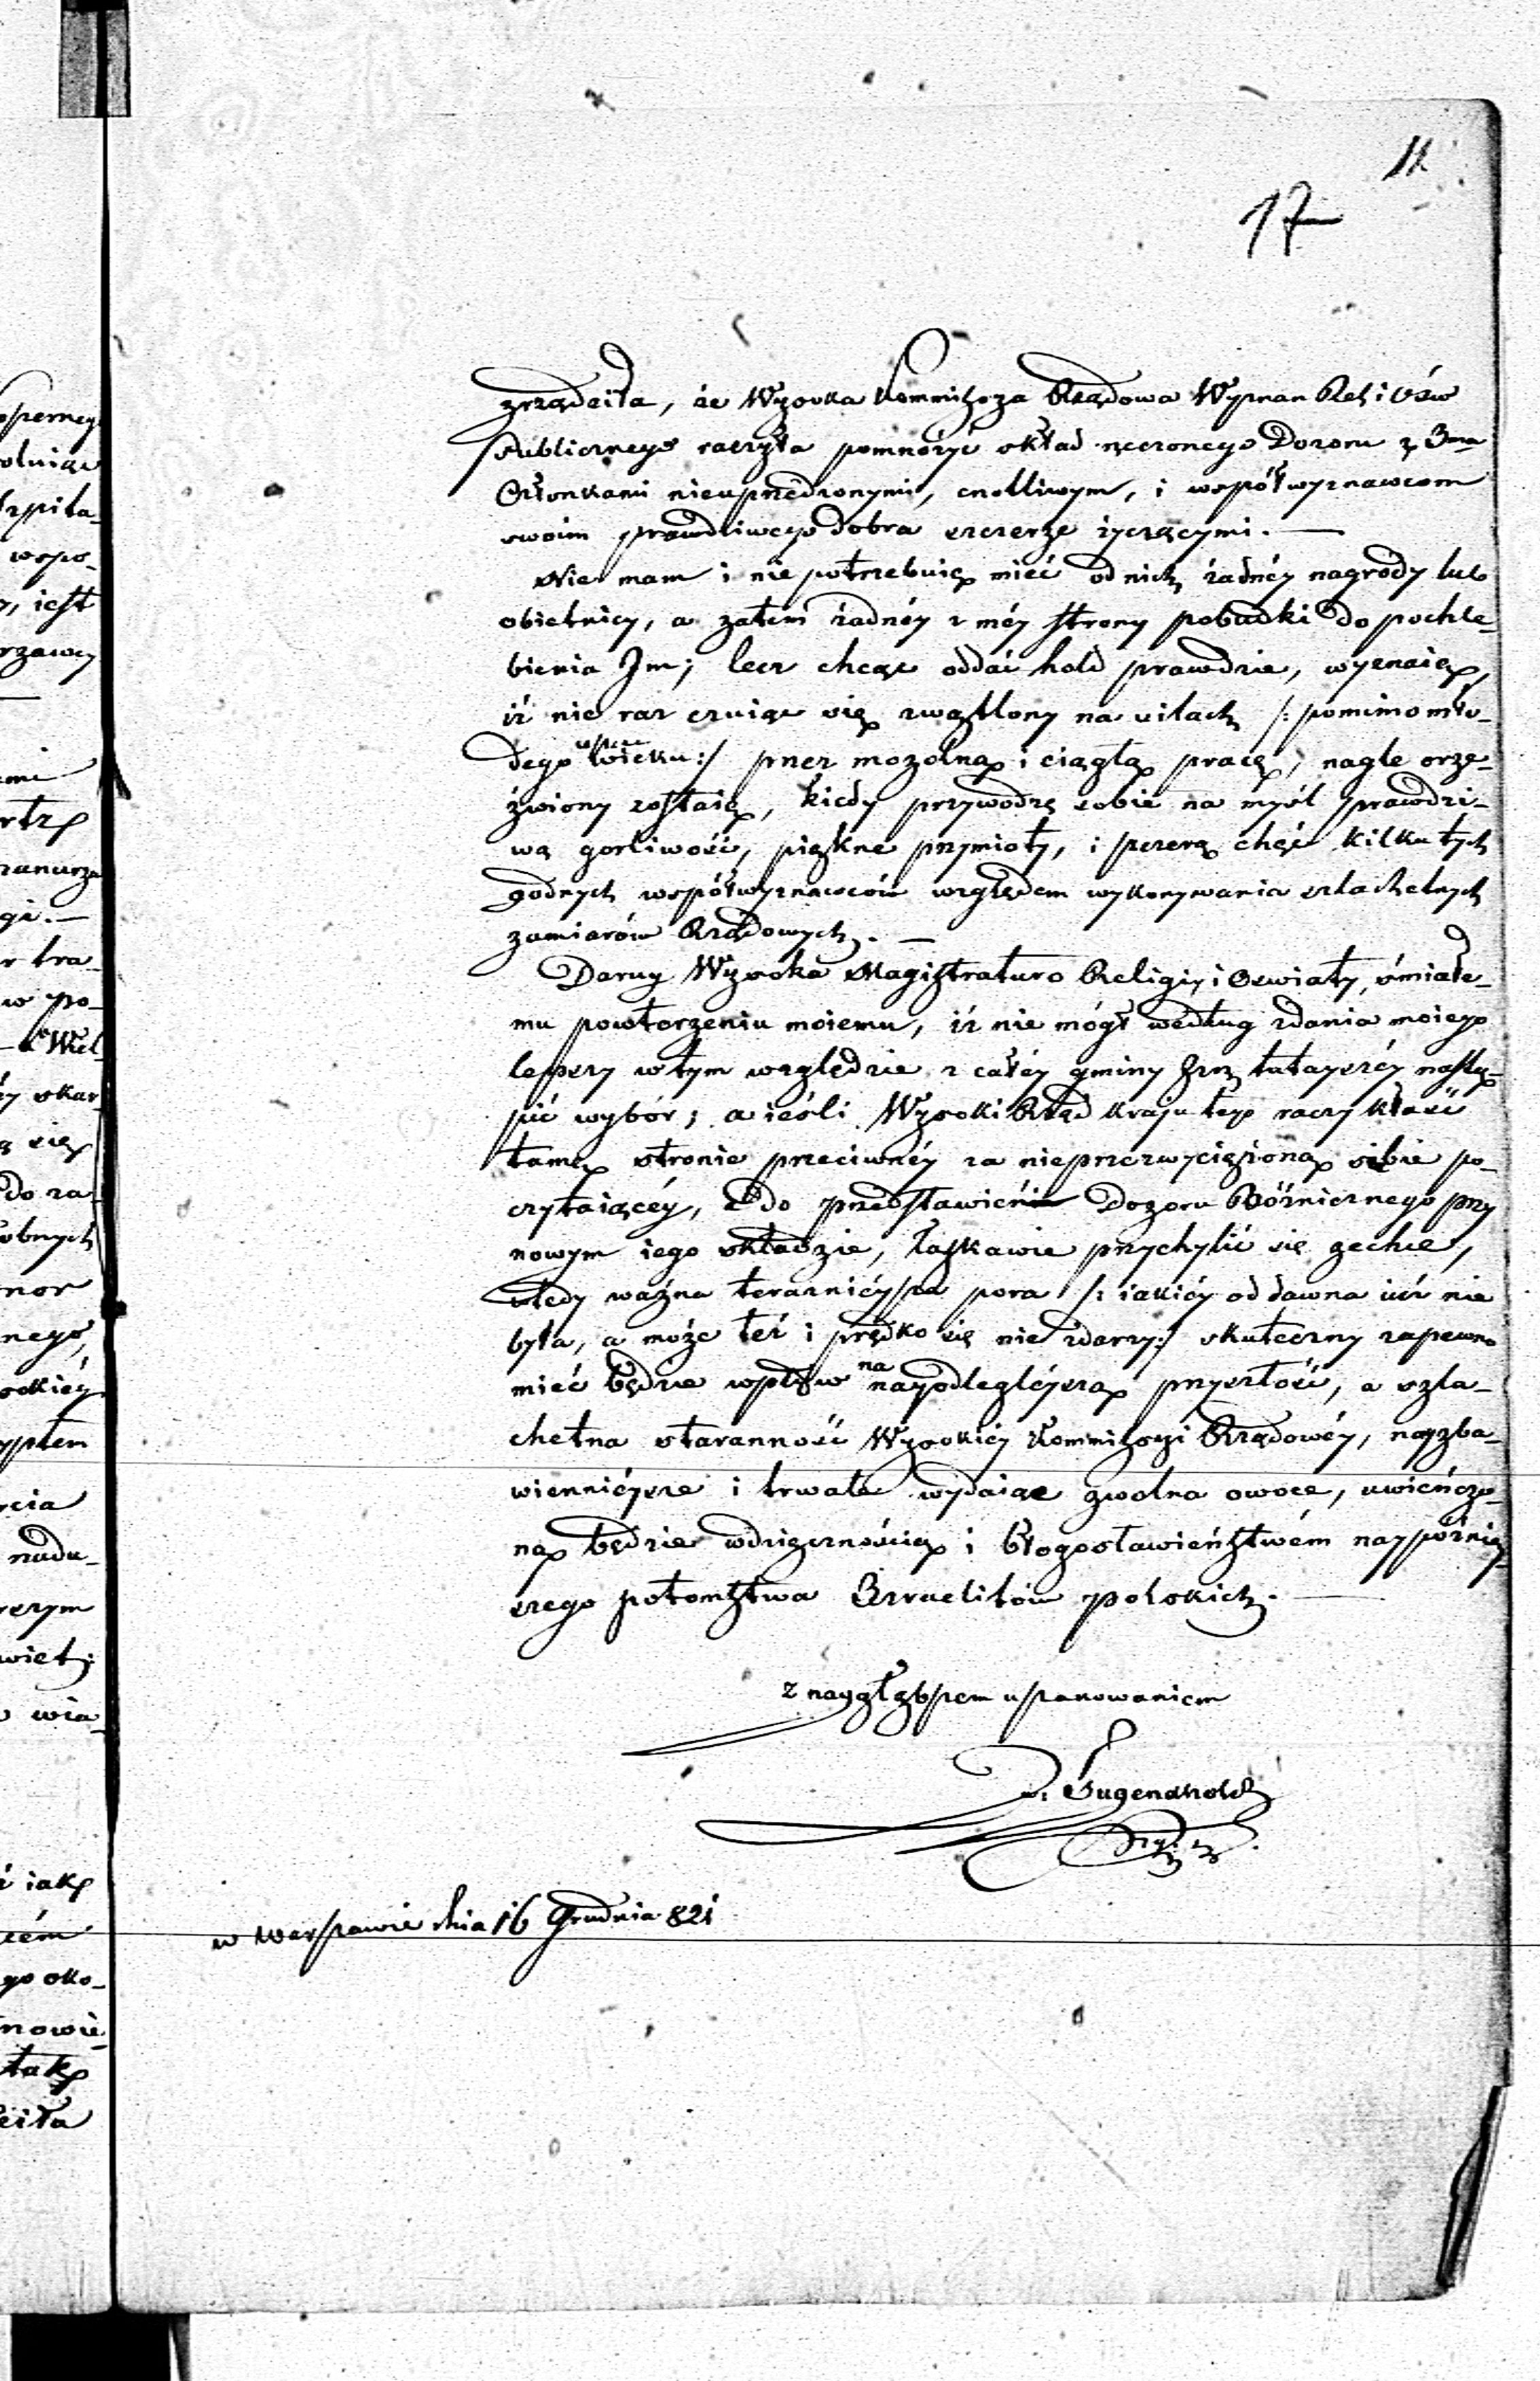 11
17
zrządziła, że Wysoka Kommissya Rządowa Wyznan Rel: i Ośw
Publicznego raczyła pomnożyć skład rzeczonego Dozoru z 3ma
Członkami nieuprzedzonymi, cnotliwym, i współwyznawcom
swoim prawdliwego dobra szczerze życzącymi. —
Nie mam i nie potrzebuię mieć od nich żadnéy nagrody lub
obietnicy, a zatem żadnéy z méy strony pobudki do pochle-
bienia Im; lecz chcąc oddać hołd prawdzie, wyznaię,
iż nie raz czuiąc się zwątlony na siłach /: pomimo mło-
dego wieku :/ przez mozolną i ciągłą pracę, nagle orze-
źwiony zostaię, kiedy przywodzę sobie na myśl prawdzi-
wą gorliwość, piękne przymioty, i szczerą chęć kilku tych
godnych współwyznawców względem wykonywania szlachetnych
zamiarów Rządowych. —
Daruy Wysoka Magistraturo Religiy i Oswiaty, śmiałe-
mu powtorzeniu moiemu, iż nie mógł według zdania moiego
lepszy w tym względzie z całéy gminy Izr: tutayszéy nastą-
pić wybór; a ieśli Wysoki Rząd kraju tego raczy kłaść
tamę stronie przeciwnéy za nieprzezwyciężoną siebie po-
czytaiącéy, do przedstawień Dozoru Bóżnicznego przy
nowym iego składzie, łaskawie przychylić się zechce,
wtedy ważna teraznieysza pora /: iakiéy od dawna iuż nie
była, a może też i prędko się nie zdarzy :/ skuteczny zapewne
mieć będzie wpływ na nayodległéyszą przyszłość, a szla-
chetna staranność Wysokiéy Kommissyi Rządowéy, nayzba-
wiennieysze i trwałe wydaiąc zwolna owoce, uwieńczo-
ną będzie wdzięcznością i błogosławieństwém naypóźniey-
szego potomstwa Izraelitów polskich. —
z naygłębszem uszanowaniem
Tugendhold
w Warszawie dnia 16 Grudnia 821